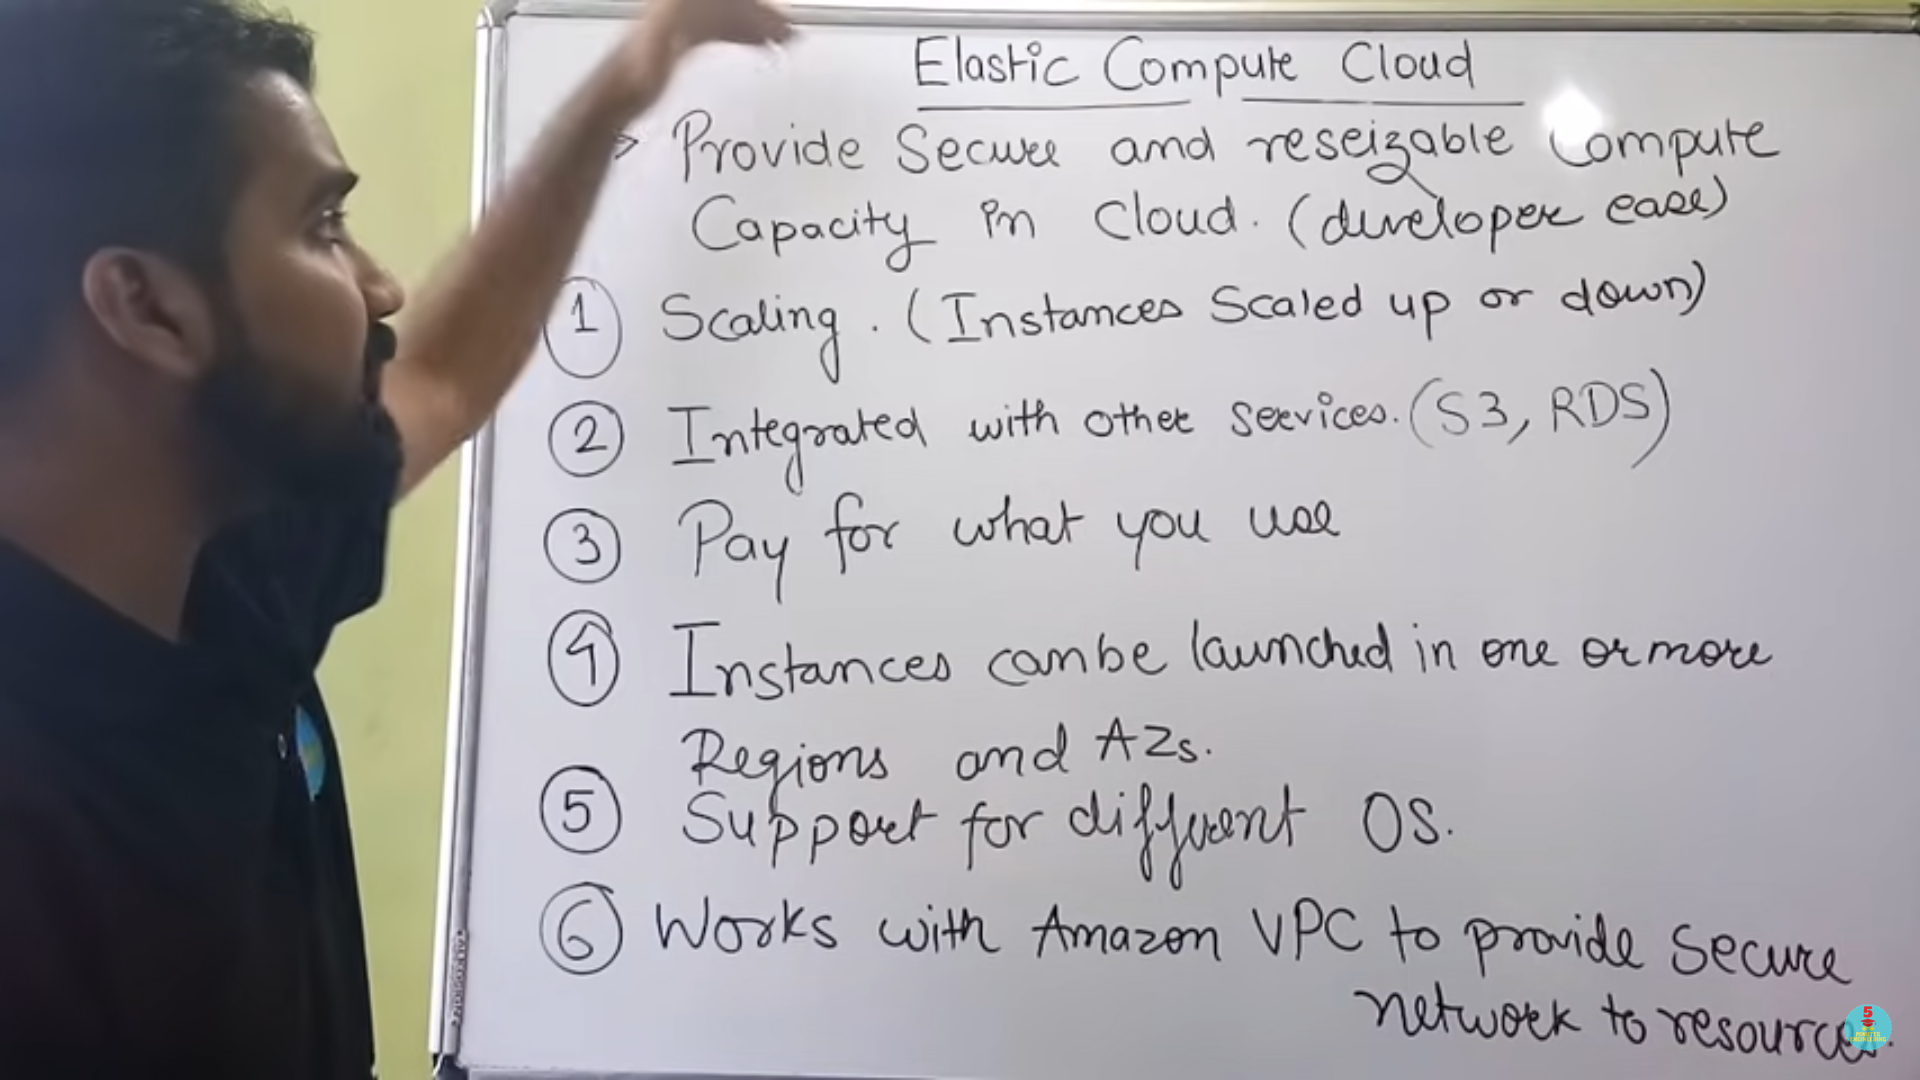 Elastic Compute Cloud
> Provide Secure and reseizable Compute
Capacity in Cloud. (developer ease)
1 Scaling. (Instances Scaled up or down)
2 Integrated with other services. (S3, RDS)
3 Pay for what you use
4 Instances can be launched in one or more
Regions and AZs.
5 Support for different OS.
6 Works with Amazon VPC to provide Secure
network to resources.
5
MINUTES
ENGINEERING